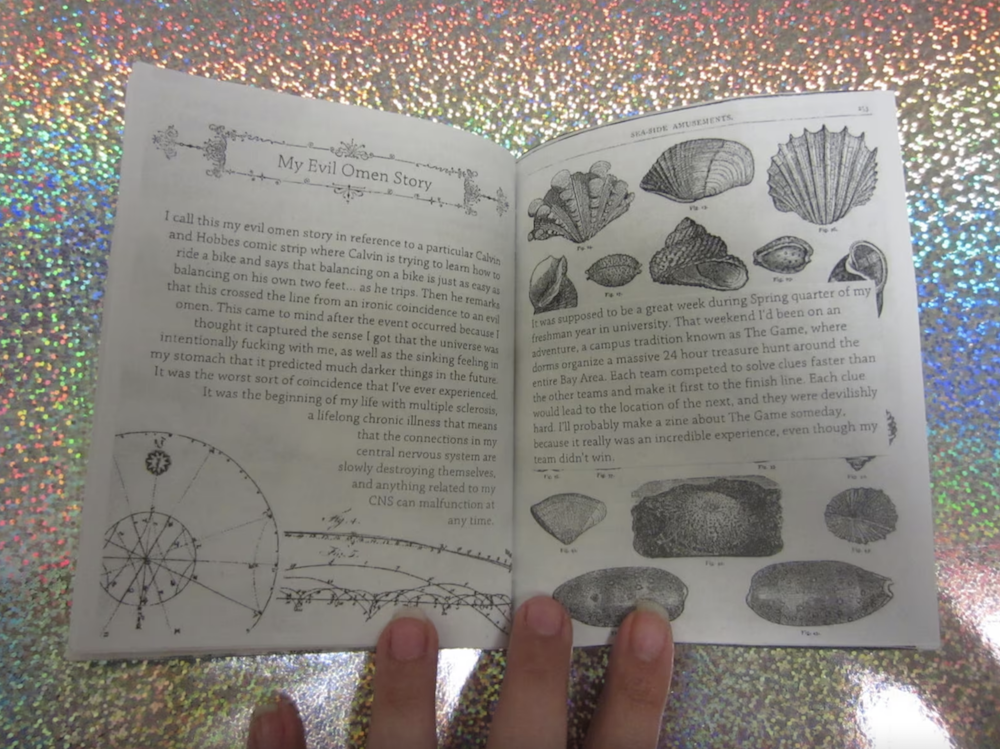 My Evil Omen Story
I call this my evil omen story in reference to a particular Calvin
and Hobbes comic strip where Calvin is trying to learn how to
ride a bike and says that balancing on a bike is just as easy as
balancing on his own two feet... as he trips. Then he remarks
that this crossed the line from an ironic coincidence to an evil
omen. This came to mind after the event occurred because I
thought it captured the sense I got that the universe was
intentionally fucking with me, as well as the sinking feeling in
my stomach that it predicted much darker things in the future.
It was the worst sort of coincidence that I've ever experienced.
It was the beginning of my life with multiple sclerosis,
a lifelong chronic illness that means
that the connections in my
central nervous system are
slowly destroying themselves,
and anything related to my
CNS can malfunction at
any time.
SEA-SIDE AMUSEMENTS.
It was supposed to be a great week during Spring quarter of my
freshman year in university. That weekend I'd been on an
adventure, a campus tradition known as The Game, where
dorms organize a massive 24 hour treasure hunt around the
entire Bay Area. Each team competed to solve clues faster than
the other teams and make it first to the finish line. Each clue
would lead to the location of the next, and they were devilishly
hard. I'll probably make a zine about The Game someday,
because it really was an incredible experience, even though my
team didn't win.